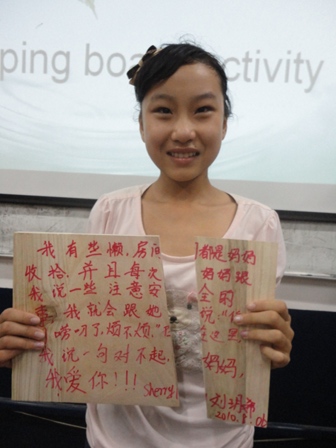 ping boa ctivity
我有些懒,房间都是妈妈
收拾,并且每次妈妈跟
我说一些注意安全的
事,我就会跟她
唠叨了,烦不烦,"在这里
我说一句对不起,妈妈,
我爱你!!! Sherry 刘
2010.